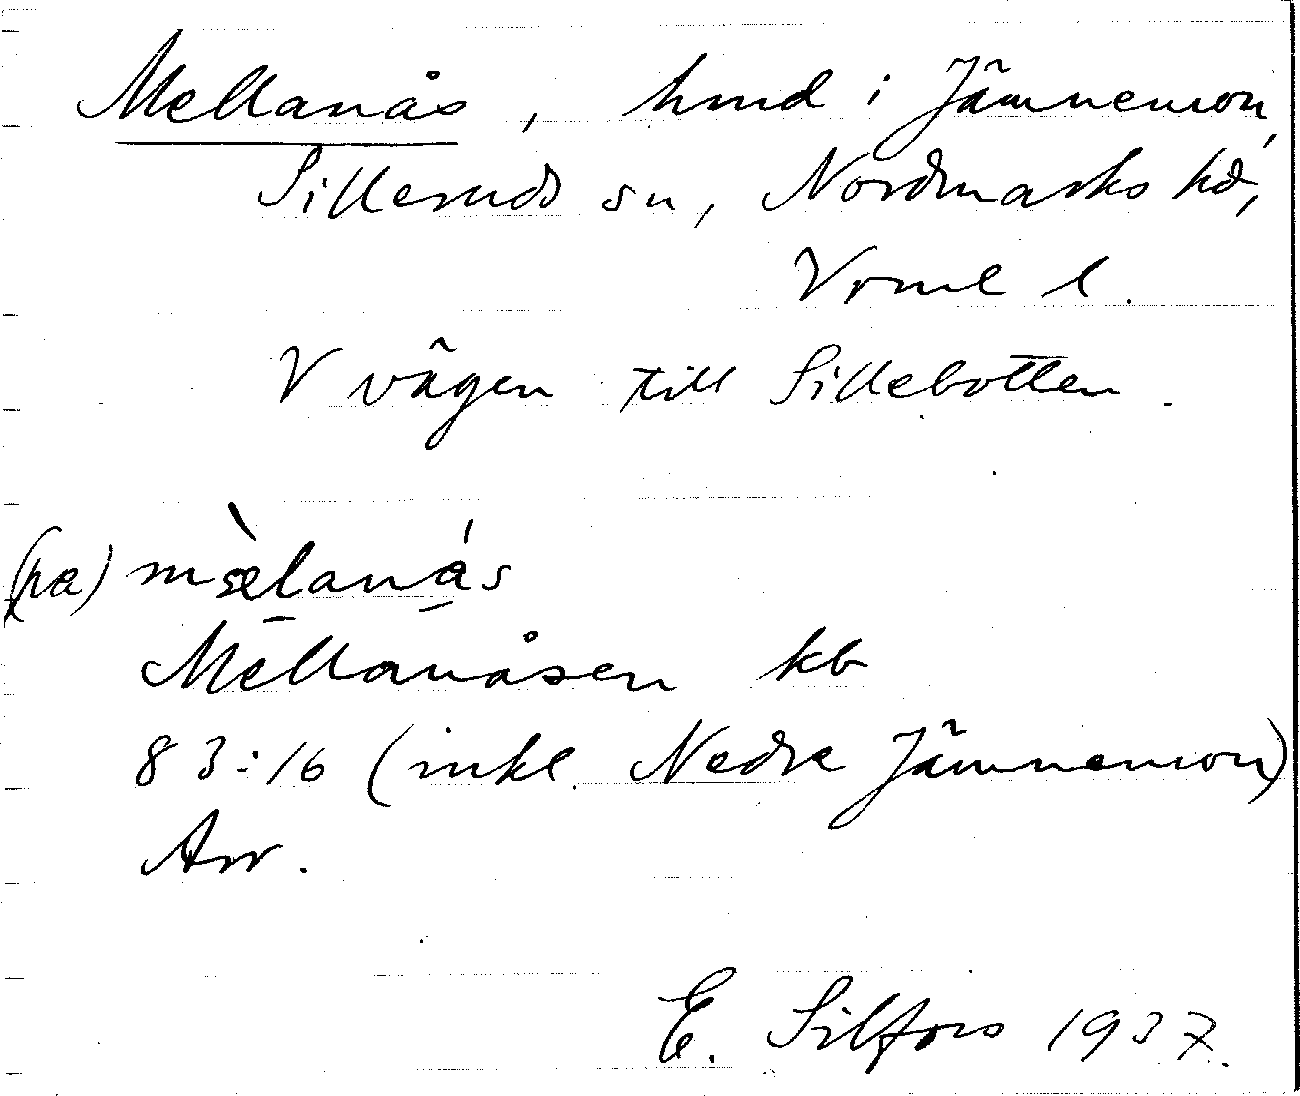 Mellanås, hmd i Jämnemon,
Silleruds sn, Nordmarks hd,
Vrml l.
V vägen till Sillebotten.
(pa) mæ̀lanás
Mellanåsen kb
83:16 (inkl. Nedre Jämnemon)
Arr.
E. Silfors 1937.